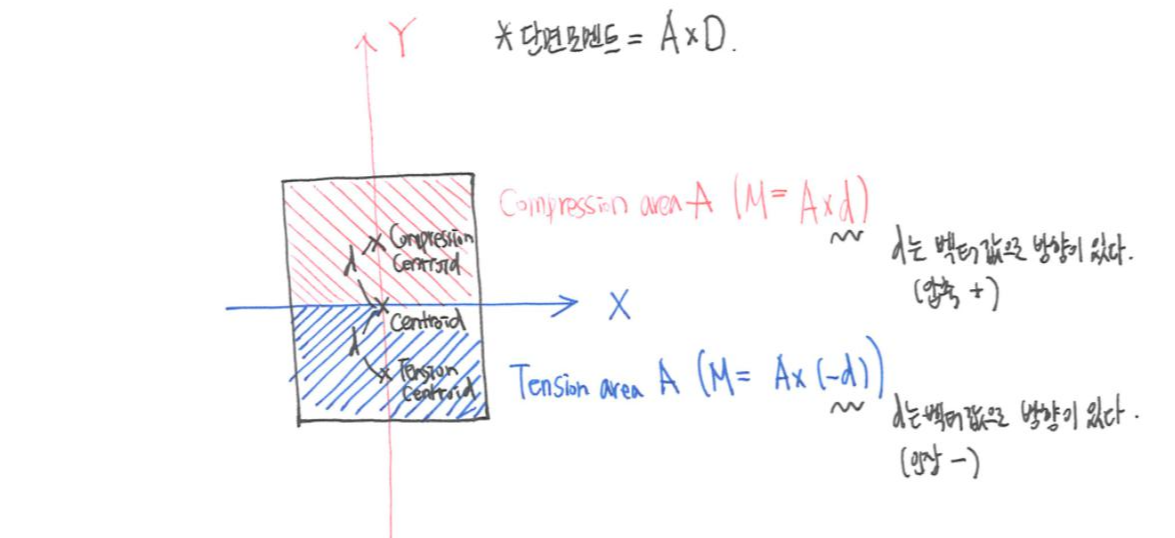 Y
* 단면모멘트 = A×D.
Compression area A (M= A×d)
d는 벡터값으로 방향이 있다.
(압축 +)
× Compression
Centroid
d
×
Centroid
X
d
× Tension
Centroid
Tension area A (M= A×(-d))
d는 벡터값으로 방향이 있다.
(인장 -)